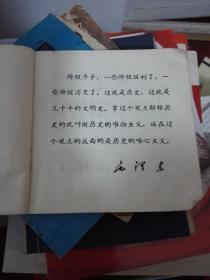 阶级斗争，一些阶级胜利了，一
些阶级消灭了。这就是历史，这就是
几千年的文明史。拿这个观点解释历
史的就叫做历史的唯物主义，站在这
个观点的反面的是历史的唯心主义。
毛泽东